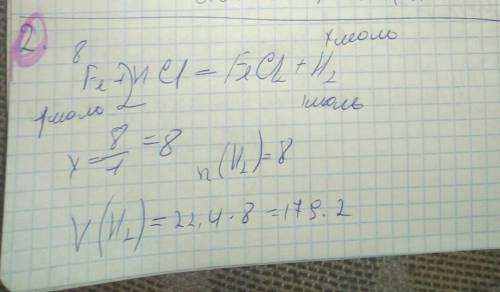 2.
8 x моль
Fe + 2HCl = FeCl₂ + H₂
1 моль 1 моль
x = 8/1 = 8 n(H₂) = 8
V(H₂) = 22,4 · 8 = 179.2